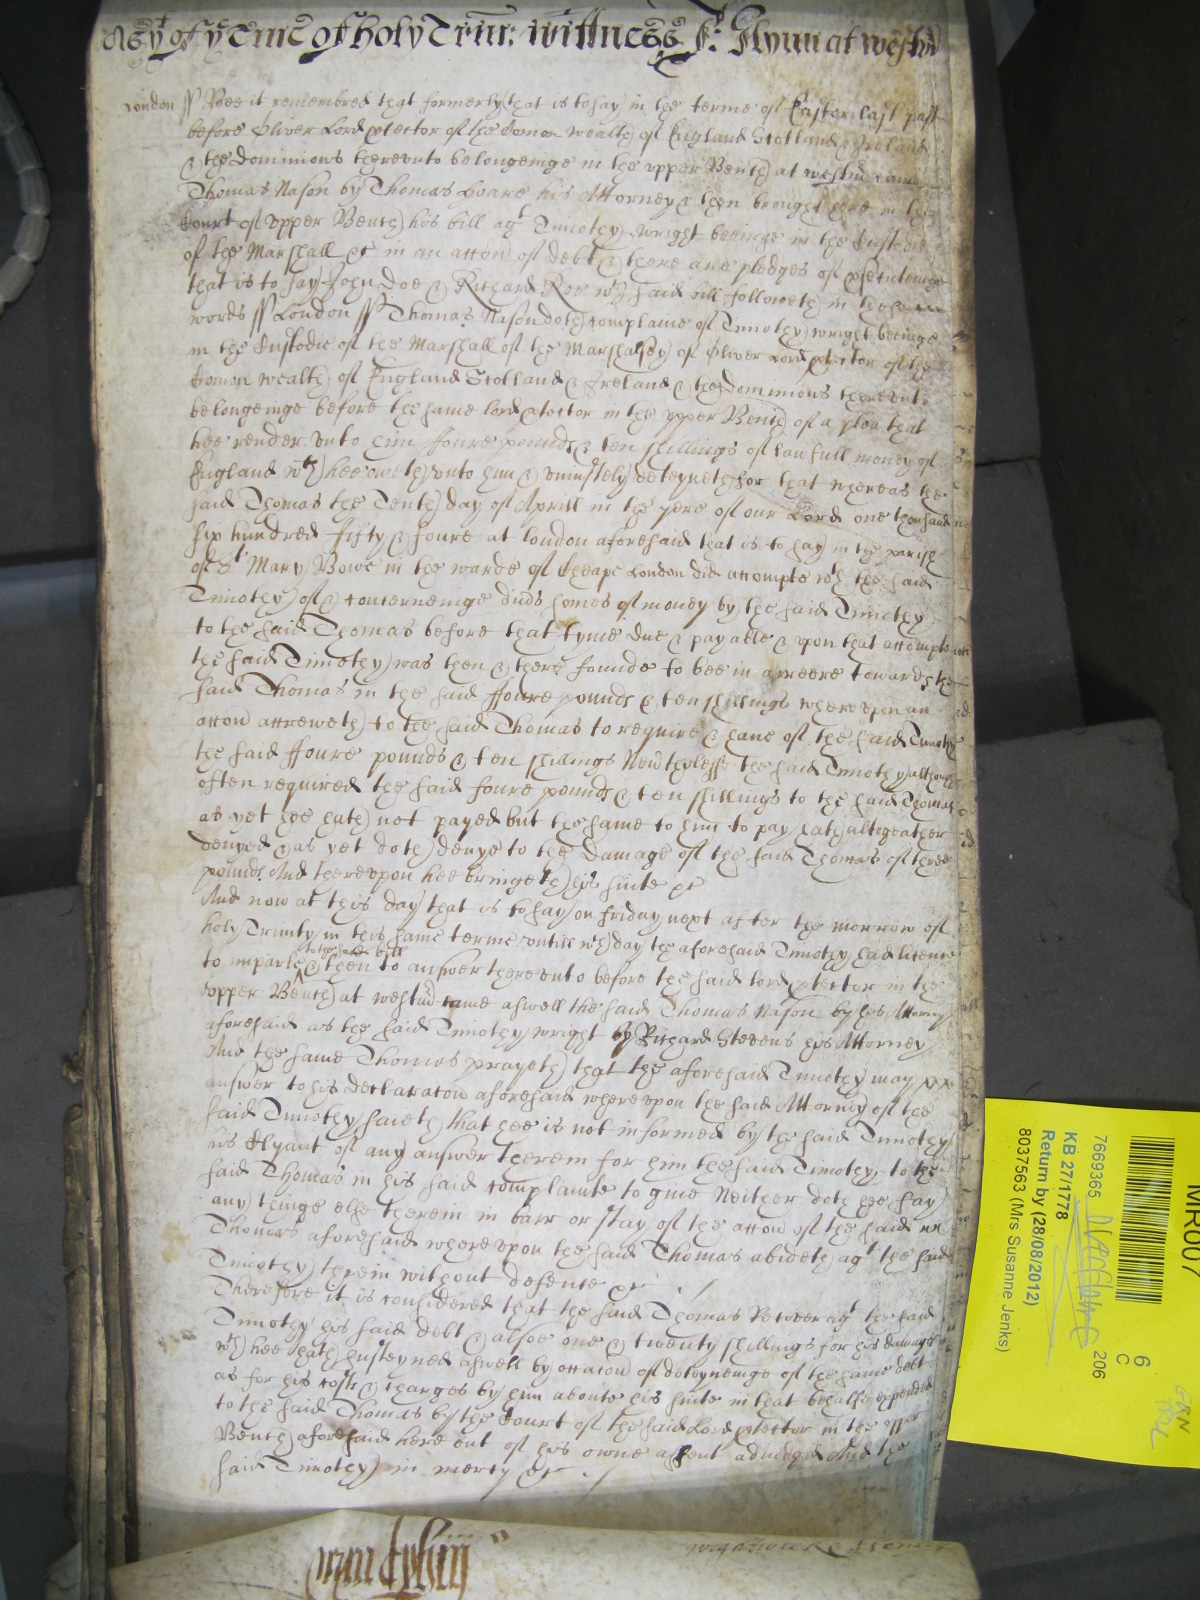 As yt of ye Terme of holy Trin: wittness J: Glynn at westm
London ss Bee it remembred that formerly that is to say in the terme of Easter last past
before Oliver Lord ptector of the Comon wealth of England Scotland & Ireland
& the dominions thereunto belongeinge in the upper Bench at westm came
Thomas Nason by Thomas Hoare his Attorney & then brought here in the
Court of upper Bench his bill agt Timothy wright beeinge in the Custodie
of the Marshall &c in an accon of debt & there are pledges of psecuteinge
that is to say John Doe & Richard Roe wch said bill followeth in these
words ss London ss Thomas Nason doth complaine of Timothy wright beeinge
in the Custodie of the Marshall of the Marshalsey of Oliver Lord ptector of the
Comon wealth of England Scotland & Ireland & the Dominions thereunto
belongeinge before the same lord ptector in the upper Bench of a plea that
hee render unto him foure pounds & ten shillings of lawfull money of
England wch hee oweth unto him & uniustely deteyneth for that whereas the
said Thomas the Tenth day of Aprill in the yere of our Lord one thousand
six hundred fifty & foure at london aforesaid that is to say in the parish
of St Mary Bowe in the warde of Cheape London did accompte wth the said
Timothy of & concerneinge divds somes of money by the said Timothy
to the said Thomas before that tyme due & payable & upon that accompte
the said Timothy was then & there founde to bee in arreere towards the
said Thomas in the said ffoure pounds & ten shillings whereupon an
accon accreweth to the said Thomas to require & have of the said Timothy
the said ffoure pounds & ten shillings Nevtheless the said Timothy although
often required the said foure pounds & ten shillings to the said Thomas
as yet hee hath not payed but the same to him to pay hath altogeather
denyed & as yet doth denye to the damage of the said Thomas of three
pounds And thereupon hee bringeth his suite &c
And now at this day that is to say on friday next after the morrow of
holy Trinity in this same terme untill wch day the aforesaid Timothy had licence
to the said bill
to imparle & then to answer thereunto before the said lord ptector in the
upper Bench at westm came aswell the said Thomas Nason by his Attorney
aforesaid as the said Timothy wright by Richard Stevens his Attorney
And the same Thomas prayeth that the aforesaid Timothy may
answer to his declaracon aforesaid whereupon the said Attorney of the
said Timothy saieth that hee is not informed by the said Timothy
his Clyant of any answer therein for him the said Timothy to the
said Thomas in his said complainte to give Neither doth hee say
any thinge else therein in barr or stay of the accon of the said
Thomas aforesaid whereupon the said Thomas abideth agt the said
Timothy therein without defence &c
Therefore it is considered that the said Thomas Recover agt the said
Timothy his said debt & alsoe one & twenty shillings for his damages
wch hee hath susteyned aswell by occacon of deteyneinge of the same debt
as for his costs & charges by him aboute his suite in that behalfe expended
to the said Thomas by the Court of the said Lord ptector in the upper
Bench aforesaid here out of his owne assent adiudged And the
said Timothy in mercy &c
MR007
7669365
206
6
C
KB 27/1778
Return by (28/08/2012)
8037563 (Mrs Susanne Jenks)